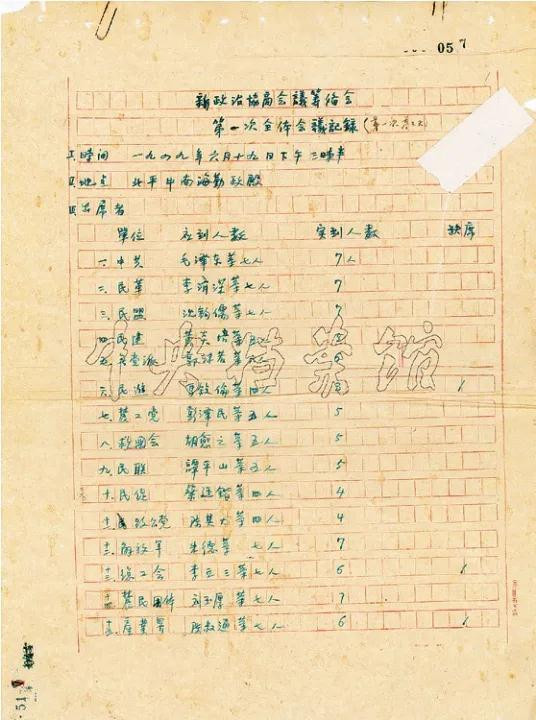 057
新政治協商会議筹俻会
第一次全体会議記録
I.時間 一九四九年六月十九日下午三時
II.地点 北平中南海勤政殿
III.出席者
單位 应到人数 実到人数 缺席
一.中共 毛澤东等七人 7人
二.民革 李濟深等七人 7
三.民盟 沈鈞儒等七人 7
四.民建 黄炎培等
五.无党派 郭沫若等
六.民進 馬敘倫等四人 3 1
七.農工党 彭澤民等五人 5
八.救国会 胡愈之等五人 5
九.民联 譚平山等五人 5
十.民促 蔡廷鍇等四人 4
十一.致公党 陈其尤等四人 4
十二.解放军 朱德等 七人 7
十三.総工会 李立三等七人 6 1
十四.農民团体 刘玉厚等七人 7
十五.產業界 陈叔通等七人 6 1
中央档案馆
51